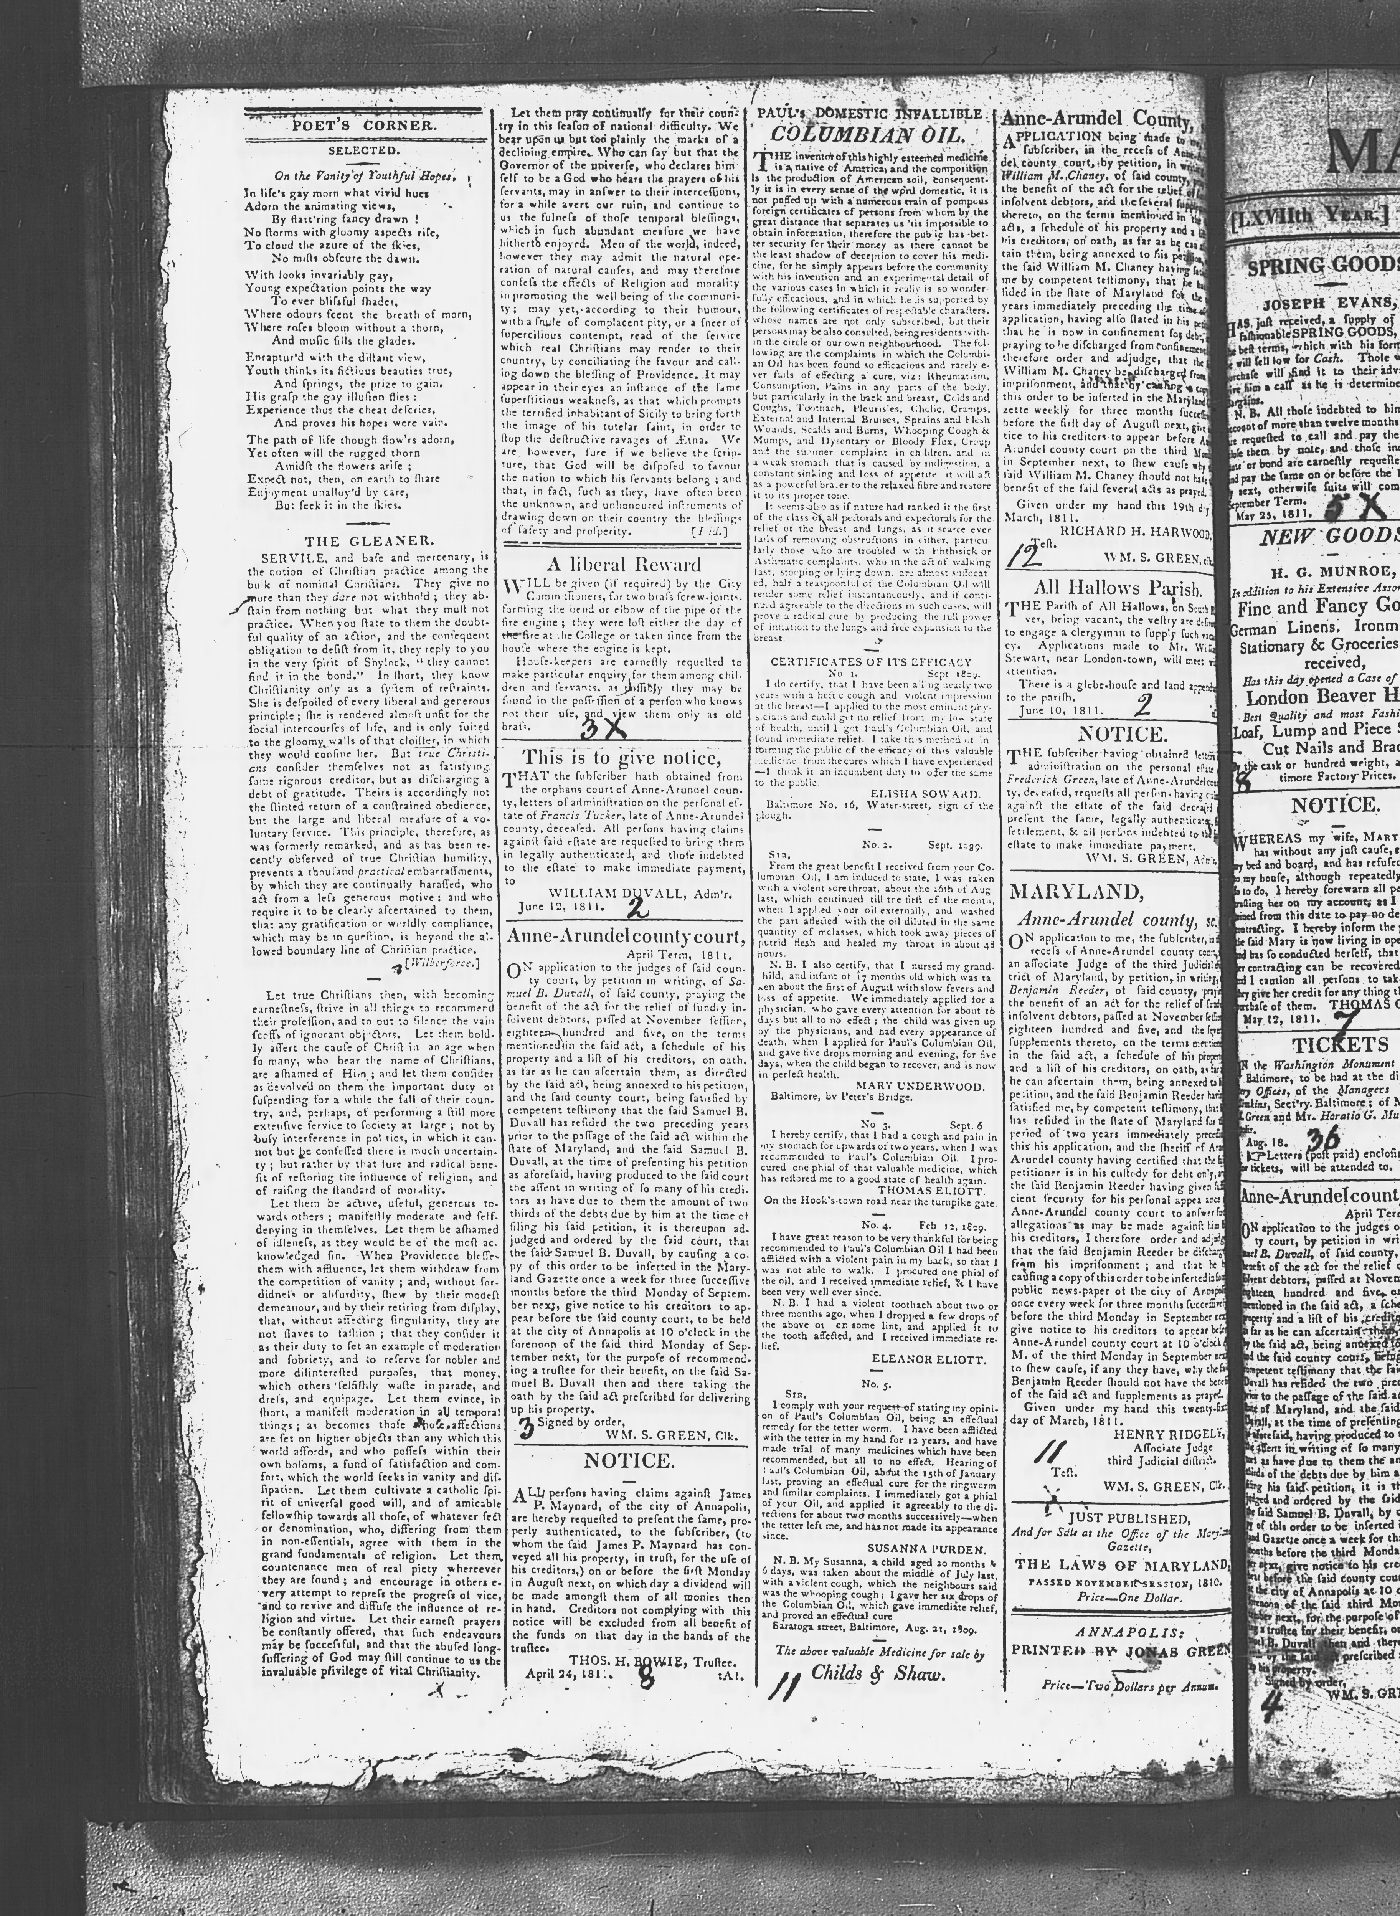 POET'S CORNER.
SELECTED.
On the Vanity of Youthful Hopes.
In life's gay morn what vivid hues
Adorn the animating views,
By flatt'ring fancy drawn !
No storms with gloomy aspects rise,
To cloud the azure of the skies,
No mists obscure the dawn.
With looks invariably gay,
Young expectation points the way
To ever blissful shades,
Where odours scent the breath of morn,
Where roses bloom without a thorn,
And music fills the glades.
Enraptur'd with the distant view,
Youth thinks its fictious beauties true,
And springs, the prize to gain.
His grasp the gay illusion flies :
Experience thus the cheat descries,
And proves his hopes were vain.
The path of life though flow'rs adorn,
Yet often will the rugged thorn
Amidst the flowers arise ;
Expect not, then, on earth to share
Enjoyment unalloy'd by care,
But seek it in the skies.
THE GLEANER.
SERVILE, and base and mercenary, is
the notion of Christian practice among the
bulk of nominal Christians. They give no
more than they dare not withhold ; they ab-
stain from nothing but what they must not
practice. When you state to them the doubt-
ful quality of an action, and the consequent
obligation to desist from it, they reply to you
in the very spirit of Shylock, " they cannot
find it in the bond." In short, they know
Christianity only as a system of restraints.
She is despoiled of every liberal and generous
principle ; she is rendered almost unfit for the
social intercourses of life, and is only suited
to the gloomy walls of that cloister, in which
they would confine her. But true Christi-
ans consider themselves not as satisfying
some rigorous creditor, but as discharging a
debt of gratitude. Theirs is accordingly not
the stinted return of a constrained obedience,
but the large and liberal measure of a vo-
luntary service. This principle, therefore, as
was formerly remarked, and as has been re-
cently observed of true Christian humility,
prevents a thousand practical embarrassments,
by which they are continually harassed, who
act from a less generous motive : and who
require it to be clearly ascertained to them,
that any gratification or worldly compliance,
which may be in question, is beyond the al-
lowed boundary line of Christian practice.
[Wilberforce.]
Let true Christians then, with becoming
earnestness, strive in all things to recommend
their profession, and to put to silence the vain
scoffs of ignorant objectors. Let them bold-
ly assert the cause of Christ in an age when
so many, who bear the name of Christians,
are ashamed of Him ; and let them consider
as devolv'd on them the important duty of
suspending for a while the fall of their coun-
try, and, perhaps, of performing a still more
extensive service to society at large ; not by
busy interference in politics, in which it can-
not but be confessed there is much uncertain-
ty ; but rather by that sure and radical bene-
fit of restoring the influence of religion, and
of raising the standard of morality.
Let them be active, useful, generous to-
wards others ; manifestly moderate and self-
denying in themselves. Let them be ashamed
of idleness, as they would be of the most ac-
knowledged sin. When Providence blesses
them with affluence, let them withdraw from
the competition of vanity ; and, without sor-
didness or absurdity, shew by their modest
demeanour, and by their retiring from display,
that, without affecting singularity, they are
not slaves to fashion ; that they consider it
as their duty to set an example of moderation
and sobriety, and to reserve for nobler and
more disinterested purposes, that money,
which others selfishly waste in parade, and
dress, and equipage. Let them evince, in
short, a manifest moderation in all temporal
things ; as becomes those whose affections
are set on higher objects than any which this
world affords, and who possess within their
own bosoms, a fund of satisfaction and com-
fort, which the world seeks in vanity and dis-
sipation. Let them cultivate a catholic spi-
rit of universal good will, and of amicable
fellowship towards all those, of whatever sect
or denomination, who, differing from them
in non-essentials, agree with them in the
grand fundamentals of religion. Let them
countenance men of real piety wherever
they are found ; and encourage in others e-
very attempt to repress the progress of vice,
and to revive and diffuse the influence of re-
ligion and virtue. Let their earnest prayers
be constantly offered, that such endeavours
may be successful, and that the abused long-
suffering of God may still continue to us the
invaluable privilege of vital Christianity.
Let them pray continually for their coun-
try in this season of national difficulty. We
bear upon us but too plainly the marks of a
declining empire. Who can say but that the
Governor of the universe, who declares him-
self to be a God who hears the prayers of his
servants, may in answer to their intercessions,
for a while avert our ruin, and continue to
us the fulness of those temporal blessings,
which in such abundant measure we have
hitherto enjoyed. Men of the world, indeed,
however they may admit the natural ope-
ration of natural causes, and may therefore
confess the effects of Religion and morality
in promoting the well being of the communi-
ty ; may yet, according to their humour,
with a smile of complacent pity, or a sneer of
supercilious contempt, read of the service
which real Christians may render to their
country, by conciliating the favour and call-
ing down the blessing of Providence. It may
appear in their eyes an instance of the same
superstitious weakness, as that which prompts
the terrified inhabitant of Sicily to bring forth
the image of his tutelar saint, in order to
stop the destructive ravages of Ætna. We
are, however, sure if we believe the scrip-
ture, that God will be disposed to favour
the nation to which his servants belong ; and
that, in fact, such as they, have often been
the unknown, and unhonoured instruments of
drawing down on their country the blessings
of safety and prosperity. [Ibid.]
A liberal Reward
WILL be given (if required) by the City
Commissioners, for two brass screw-joints,
forming the bend or elbow of the pipe of the
fire engine ; they were lost either the day of
the fire at the College or taken since from the
house where the engine is kept.
House-keepers are earnestly requested to
make particular enquiry for them among chil-
dren and servants, as possibly they may be
found in the possession of a person who knows
not their use, and view them only as old
brass.
3X
This is to give notice,
THAT the subscriber hath obtained from
the orphans court of Anne-Arundel coun-
ty, letters of administration on the personal es-
tate of Francis Tucker, late of Anne-Arundel
county, deceased. All persons having claims
against said estate are requested to bring them
in legally authenticated, and those indebted
to the estate to make immediate payment,
to
WILLIAM DUVALL, Adm'r.
June 12, 1811. 2
Anne-Arundel county court,
April Term, 1811.
ON application to the judges of said coun-
ty court, by petition in writing, of Sa-
muel B. Duvall, of said county, praying the
benefit of the act for the relief of sundry in-
solvent debtors, passed at November session,
eighteen hundred and five, on the terms
mentioned in the said act, a schedule of his
property and a list of his creditors, on oath,
as far as he can ascertain them, as directed
by the said act, being annexed to his petition,
and the said county court, being satisfied by
competent testimony that the said Samuel B.
Duvall has resided the two preceding years
prior to the passage of the said act within the
state of Maryland, and the said Samuel B.
Duvall, at the time of presenting his petition
as aforesaid, having produced to the said court
the assent in writing of so many of his credi-
tors as have due to them the amount of two
thirds of the debts due by him at the time of
filing his said petition, it is thereupon ad-
judged and ordered by the said court, that
the said Samuel B. Duvall, by causing a co-
py of this order to be inserted in the Mary-
land Gazette once a week for three successive
months before the third Monday of Septem-
ber next, give notice to his creditors to ap-
pear before the said county court, to be held
at the city of Annapolis at 10 o'clock in the
forenoon of the said third Monday of Sep-
tember next, for the purpose of recommend-
ing a trustee for their benefit, on the said Sa-
muel B. Duvall then and there taking the
oath by the said act prescribed for delivering
up his property.
3 Signed by order,
WM. S. GREEN, Clk.
NOTICE.
ALL persons having claims against James
P. Maynard, of the city of Annapolis,
are hereby requested to present the same, pro-
perly authenticated, to the subscriber, (to
whom the said James P. Maynard has con-
veyed all his property, in trust, for the use of
his creditors,) on or before the first Monday
in August next, on which day a dividend will
be made amongst them of all monies then
in hand. Creditors not complying with this
notice will be excluded from all benefit of
the funds on that day in the hands of the
trustee.
THOS. H. BOWIE, Trustee.
April 24, 1811. 8 tA1.
PAUL's DOMESTIC INFALLIBLE
COLUMBIAN OIL.
THE inventor of this highly esteemed medicine
is a native of America, and the composition
is the production of American soil, consequent-
ly it is in every sense of the word domestic, it is
not puffed up with a numerous train of pompous
foreign certificates of persons from whom by the
great distance that separates us 'tis impossible to
obtain information, therefore the public has bet-
ter security for their money as there cannot be
the least shadow of deception to cover his medi-
cine, for he simply appears before the community
with his invention and an experimental detail of
the various cases in which it really is so wonder-
fully efficacious, and in which he is supported by
the following certificates of respectable characters,
whose names are not only subscribed, but their
persons may be also consulted, being residents with-
in the circle of our own neighbourhood. The fol-
lowing are the complaints in which the Columbi-
an Oil has been found so efficacious and rarely e-
ver fails of effecting a cure, viz: Rheumatism,
Consumption, Pains in any parts of the body,
but particularly in the back and breast, Colds and
Coughs, Toothach, Pleurisies, Cholic, Cramps,
External and Internal Bruises, Sprains and Flesh
Wounds, Scalds and Burns, Whooping Cough &
Mumps, and Dysentary or Bloody Flux, Croup
and the summer complaint in children, and in
a weak stomach that is caused by indigestion, a
constant sinking and loss of appetite it will act
as a powerful bracer to the relaxed fibre and restore
it to its proper tone.
It seems also as if nature had ranked it the first
of the class of all pectorals and expectorals for the
relief of the breast and lungs, as it scarce ever
fails of removing obstructions in either, particu-
larly those who are troubled with Phthisick or
Asthmatic complaints, who in the act of walking
fast, stooping or lying down, are almost suffocat-
ed, half a teaspoonful of the Columbian Oil will
render some relief instantaneously, and if conti-
nued agreeable to the directions in such cases, will
prove a radical cure by producing the full power
of inflation to the lungs and free expansion to the
breast.
CERTIFICATES OF ITS EFFICACY
No 1. Sept 1809.
I do certify, that I have been ailing nearly two
years with a hectic cough and violent oppression
at the breast—I applied to the most eminent phy-
sicians and could get no relief from my low state
of health, until I got Paul's Columbian Oil, and
found immediate relief. I take this method of in-
forming the public of the efficacy of this valuable
medicine from the cures which I have experienced
—I think it an incumbent duty to offer the same
to the public.
ELISHA SOWARD.
Baltimore No. 16, Water-street, sign of the
plough.
No. 2. Sept. 1809.
SIR,
From the great benefit I received from your Co-
lumbian Oil, I am induced to state, I was taken
with a violent sore throat, about the 26th of Aug
last, which continued till the first of the month,
when I applied your oil externally, and washed
the part affected with the oil diluted in the same
quantity of molasses, which took away pieces of
putrid flesh and healed my throat in about 48
hours.
N. B. I also certify, that I nursed my grand-
child, and infant of 17 months old which was ta-
ken about the first of August with slow fevers and
loss of appetite. We immediately applied for a
physician, who gave every attention for about 16
days but all to no effect ; the child was given up
by the physicians, and had every appearance of
death, when I applied for Paul's Columbian Oil,
and gave five drops morning and evening, for five
days, when the child began to recover, and is now
in perfect health.
MARY UNDERWOOD.
Baltimore, by Peter's Bridge.
No 3. Sept. 6
I hereby certify, that I had a cough and pain in
my stomach for upwards of two years, when I was
recommended to Paul's Columbian Oil. I pro-
cured one phial of that valuable medicine, which
has restored me to a good state of health again.
THOMAS ELIOTT.
On the Hook's-town road near the turnpike gate.
No. 4. Feb 12, 1809.
I have great reason to be very thankful for being
recommended to Paul's Columbian Oil I had been
afflicted with a violent pain in my back, so that I
was not able to walk. I procured one phial of
the oil, and I received immediate relief, & I have
been very well ever since.
N. B. I had a violent toothach about two or
three months ago, when I dropped a few drops of
the above oil on some lint, and applied it to
the tooth affected, and I received immediate re-
lief.
ELEANOR ELIOTT.
No. 5.
SIR,
I comply with your request of stating my opini-
on of Paul's Columbian Oil, being an effectual
remedy for the tetter worm. I have been afflicted
with the tetter in my hand for 12 years, and have
made trial of many medicines which have been
recommended, but all to no effect. Hearing of
Paul's Columbian Oil, about the 15th of January
last, proving an effectual cure for the ringworm
and similar complaints. I immediately got a phial
of your Oil, and applied it agreeably to the di-
rections for about two months successively—when
the tetter left me, and has not made its appearance
since.
SUSANNA PURDEN.
N. B. My Susanna, a child aged 20 months &
6 days, was taken about the middle of July last,
with a violent cough, which the neighbours said
was the whooping cough ; I gave her six drops of
the Columbian Oil, which gave immediate relief,
and proved an effectual cure
Saratoga street, Baltimore, Aug. 21, 1809.
The above valuable Medicine for sale by
11 Childs & Shaw.
Anne-Arundel County,
APPLICATION being made to
subscriber, in the recess of Anne
del county court, by petition, in
William M. Chaney, of said county,
the benefit of the act for the relief of
insolvent debtors, and the several
thereto, on the terms mentioned in
acts, a schedule of his property and a
his creditors, on oath, as far as he can
tain them, being annexed to his
the said William M. Chaney having
me by competent testimony, that he
sided in the state of Maryland for
years immediately preceding the time
application, having also stated in his
that he is now in confinement for debt,
praying to be discharged from confinement
therefore order and adjudge, that the
William M. Chaney be discharged from
imprisonment, and that by causing a copy
this order to be inserted in the Maryland
zette weekly for three months
before the first day of August next, give
tice to his creditors to appear before
Arundel county court on the third
in September next, to shew cause why
said William M. Chaney should not have
benefit of the said several acts as prayed.
Given under my hand this 19th
March, 1811.
RICHARD H. HARWOOD.
Test.
12 WM. S. GREEN, clk.
All Hallows Parish.
THE Parish of All Hallows, on South
ver, being vacant, the vestry are
to engage a clergyman to supply such
cy. Applications made to Mr.
Stewart, near London-town, will meet
attention.
There is a glebe-house and land
to the parish.
June 10, 1811. 2
NOTICE.
THE subscriber having obtained letters
administration on the personal estate
Frederick Green, late of Anne-Arundel
ty, deceased, requests all persons having
against the estate of the said deceased
present the same, legally authenticated,
settlement, & all persons indebted to
estate to make immediate payment.
WM. S. GREEN,
MARYLAND,
Anne-Arundel county, sc.
ON application to me, the subscriber,
recess of Anne-Arundel county
an associate Judge of the third Judicial
trict of Maryland, by petition, in writing,
Benjamin Reeder, of said county,
the benefit of an act for the relief of
insolvent debtors, passed at November
eighteen hundred and five, and the
supplements thereto, on the terms
in the said act, a schedule of his
and a list of his creditors, on oath,
he can ascertain them, being annexed to
petition, and the said Benjamin Reeder
satisfied me, by competent testimony, that
has resided in the state of Maryland for
period of two years immediately
this his application, and the sheriff of
Arundel county having certified that the
petitioner is in his custody for debt only,
the said Benjamin Reeder having given
cient security for his personal
Anne-Arundel county court to answer
allegations as may be made against him
his creditors, I therefore order and adjudge
that the said Benjamin Reeder be
from his imprisonment ; and that he
causing a copy of this order to be inserted in
public news-paper of the city of
once every week for three months
before the third Monday in September
give notice to his creditors to appear before
Anne-Arundel county court at 10 o'clock
M. of the third Monday in September
to shew cause, if any they have, why the
Benjamin Reeder should not have the
of the said act and supplements as prayed.
Given under my hand this
day of March, 1811.
HENRY RIDGELY,
Associate Judge
third Judicial district.
11
Test.
WM. S. GREEN, Clk.
JUST PUBLISHED,
And for Sale at the Office of the Maryland
Gazette,
THE LAWS OF MARYLAND,
PASSED NOVEMBER SESSION, 1810.
Price—One Dollar.
ANNAPOLIS:
PRINTED BY JONAS GREEN
Price—Two Dollars per Annum.
MA
[LXVIIth YEAR.]
SPRING GOODS
JOSEPH EVANS,
HAS just received, a supply of
fashionable SPRING GOODS,
best terms, which with his
will sell low for Cash. Those
purchase will find it to their
give him a call as he is
bargains.
N. B. All those indebted to him
account of more than twelve months
requested to call and pay the
by note, and those
note or bond are earnestly
and pay the same on or before the
next, otherwise suits will
September Term.
May 25, 1811. 5 X
NEW GOODS
H. G. MUNROE,
In addition to his Extensive
Fine and Fancy
German Linens,
Stationary & Groceries
received,
Has this day opened a Case of
London Beaver
Best Quality and most
Loaf, Lump and Piece
Cut Nails and
by the cask or hundred weight,
timore Factory Prices.
8
NOTICE.
WHEREAS my wife, MARY
has without any just cause,
my bed and board, and has
to my house, although repeatedly
to do, I hereby forewarn all
trusting her on my account, as I
from this date to pay no
contracting. I hereby inform the
the said Mary is now living in
and has so conducted herself, that
her contracting can be recovered
and I caution all persons to
they give her credit for any thing
of them. THOMAS
May 12, 1811. 7
TICKETS
IN the Washington Monument
Baltimore, to be had at the
Offices, of the Managers
Sect'ry. Baltimore ; of
Green and Mr. Horatio G.
Aug. 18. 36
Letters (post paid)
for tickets, will be attended to.
Anne-Arundel
April
ON application to the judges
ty court, by petition in
Samuel B. Duvall, of said county,
benefit of the act for the relief
solvent debtors, passed at
eighteen hundred and five,
mentioned in the said act, a
property and a list of his
as far as he can ascertain
by the said act, being annexed
and the said county court,
competent testimony that the
Duvall has resided the two
prior to the passage of the said
state of Maryland, and the said
Duvall, at the time of presenting
as aforesaid, having produced to
the assent in writing of so many
tors as have due to them the
thirds of the debts due by him
filing his said petition, it is
judged and ordered by the said
the said Samuel B. Duvall, by
py of this order to be inserted
land Gazette once a week for
months before the third Monday
ber next, give notice to his
pear before the said county
at the city of Annapolis at 10
forenoon of the said third
tember next, for the purpose of
ing a trustee for their benefit,
muel B. Duvall then and there
oath by the said act prescribed
up his property.
Signed by order,
4 WM. S.